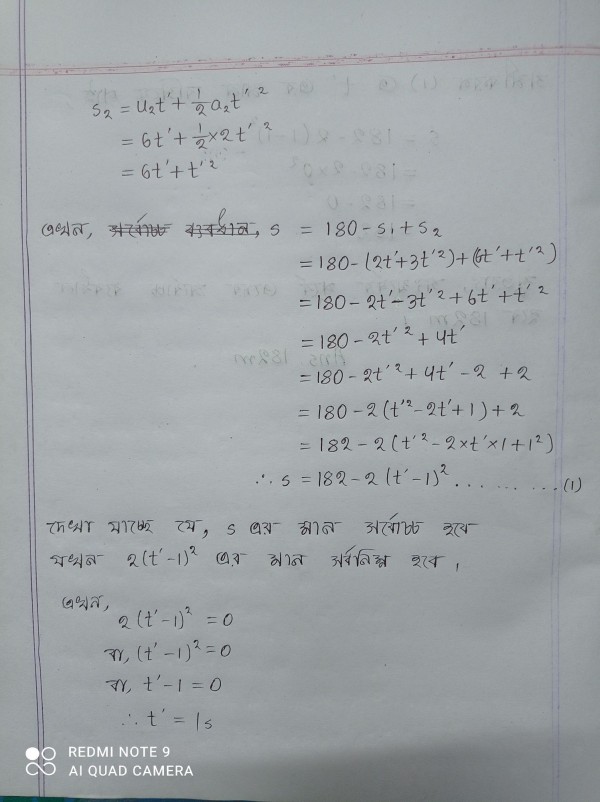 s₂ = u₂t' + ½a₂t'²
= 6t' + ½×2t'²
= 6t' + t'²
এখন, সর্বোচ্চ ব্যবধান, s = 180 - s₁ + s₂
= 180 - (2t' + 3t'²) + (6t' + t'²)
= 180 - 2t' - 3t'² + 6t' + t'²
= 180 - 2t'² + 4t'
= 180 - 2t'² + 4t' - 2 + 2
= 180 - 2(t'² - 2t' + 1) + 2
= 182 - 2(t'² - 2×t'×1 + 1²)
∴ s = 182 - 2(t' - 1)² .......... (1)
দেখা যাচ্ছে যে, s এর মান সর্বোচ্চ হবে
যখন 2(t' - 1)² এর মান সর্বনিম্ন হবে।
এখন,
2(t' - 1)² = 0
বা, (t' - 1)² = 0
বা, t' - 1 = 0
∴ t' = 1s
REDMI NOTE 9
AI QUAD CAMERA